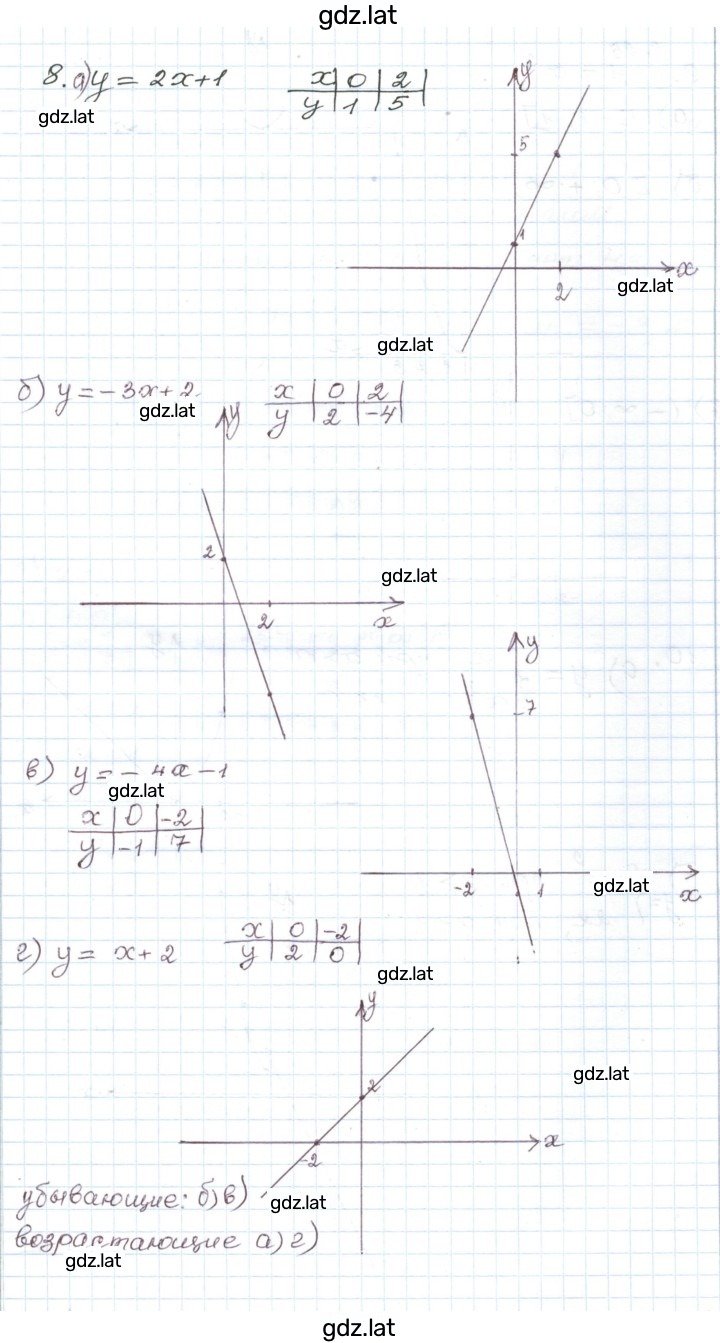 gdz.lat
8. а) y = 2x+1
x | 0 | 2 |
y | 1 | 5 |
gdz.lat
y
5
1
x
2
gdz.lat
gdz.lat
б) y = -3x+2
x | 0 | 2 |
y | 2 | -4 |
gdz.lat
y
2
gdz.lat
2
x
y
7
в) y = -4x-1
gdz.lat
x | 0 | -2 |
y | -1 | 7 |
-2
1
gdz.lat
x
г) y = x+2
x | 0 | -2 |
y | 2 | 0 |
gdz.lat
y
gdz.lat
2
x
-2
убывающие: б) в)
gdz.lat
возрастающие а) г)
gdz.lat
gdz.lat